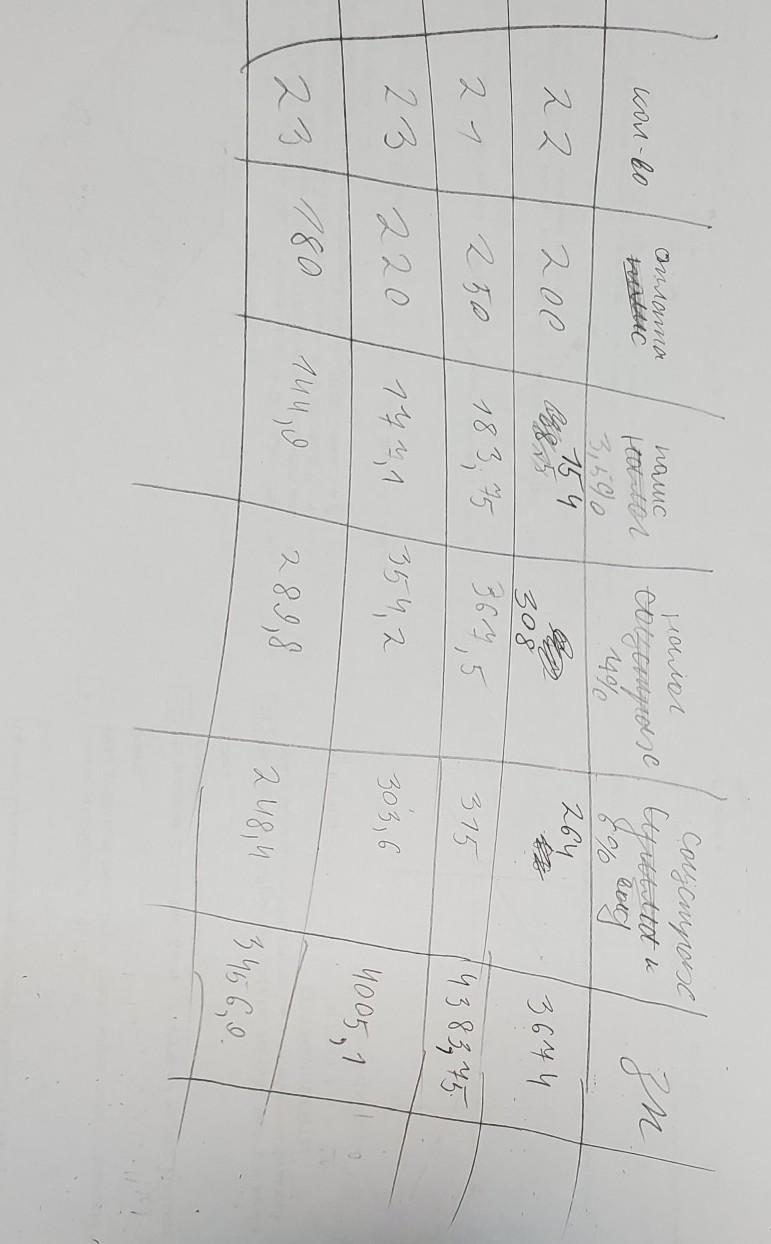 кол-во оплата паис налог соцстрах ЗП
3,5% 7% 6%
22 200 154 308 264 3674
21 250 183,75 367,5 315 4383,75
23 220 177,1 354,2 303,6 4005,1
23 180 144,9 289,8 248,4 3456,9